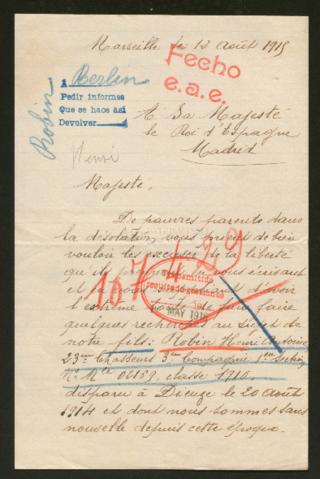 Marseille le 12 Août 1915
Fecho
e.a.e.
A Berlin
Pedir informes
Que se hace así
Devolver
Robin
Henri
A Sa Majesté
le Roi d'Espagne
Madrid
Majesté,
De pauvres parents dans
la désolation, vous prient de bien
vouloir les excuser de la liberté
qu'ils prennent en vous écrivant
et
l'extrême bonté de faire faire
quelques recherches au sujet de
notre fils: Robin Henri
23me Chasseurs 3me Compagnie 1ère Section
classe 1910
disparu à Dieuze le 20 août
1914 et dont nous sommes sans
nouvelle depuis cette époque.
MAY 191